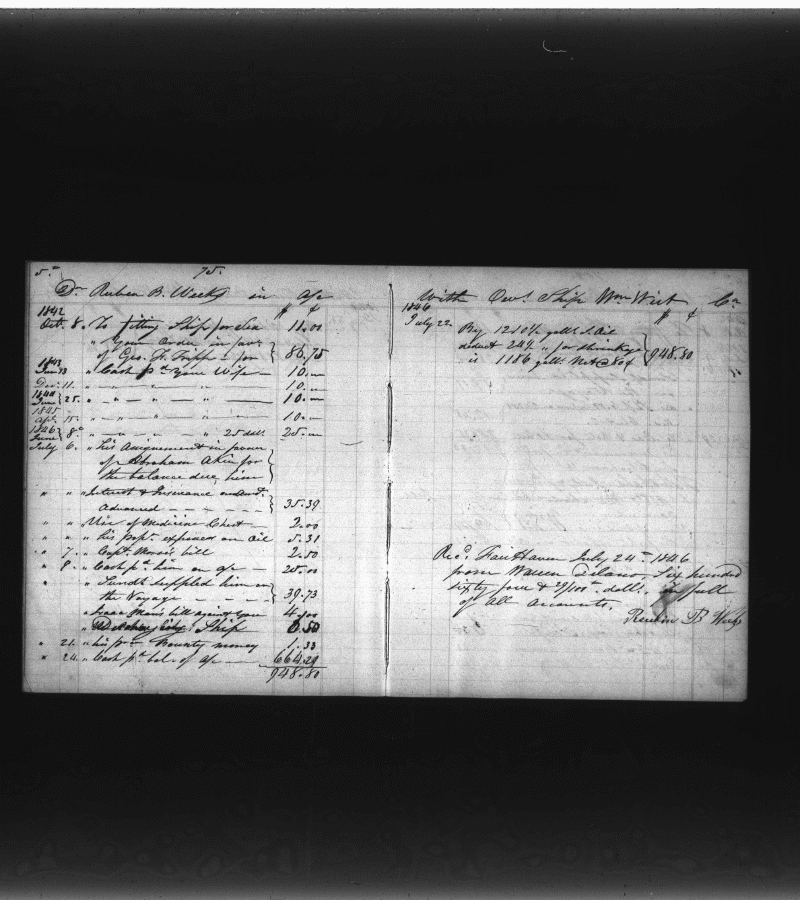 5
75.
Dr Ruben B. Weeks in a/c
$ ¢
1842
Oct. 8. To fitting Ship for Sea 11.00
" Your Order in favr
of Geo. F. Tripp - for 86.75
1843
" Cash pd Your Wife — 10.00
Dec. 11. " — " — " — 10.00
1844
June 25. " — " — " — 10.00
1845
Apl. 15. " — " — " — 10.00
1846
June 8. " — — — " 25 dolls. 25.00
July 6. " his Assignement in favour
of Abraham Akin for
the balance due him
" " " Interest & Insurance on Amt.
Advanced — — — — 35.39
" " " Use of Medicine Chest — 2.00
" " " his pspt. expenses on Oil 5.31
" 7. " Capt. bill 2.50
" 8. " Cash pd him on a/c — 25.00
" " Sunds supplied him on
the Voyage — — — — 39.73
" Isaac bill against you 4.
" Ship 6.50
" 21. " his pn Bounty money 1.33
" 24. " Cash pd bal. of a/c — 664.29
948.80
With Ows. Ship Wm Wirt Cr
1846 $ ¢
July 22. By 1210½ galls. S. Oil
deduct 24½ " for shrinkge
is 1186 galls. Net @ 80¢ 948.80
Recd. Fair Haven July 24th 1846
from Warren Delano, Six hundred
sixty four & 29/100ths dolls. in full
of all accounts.
Reuben B Weeks